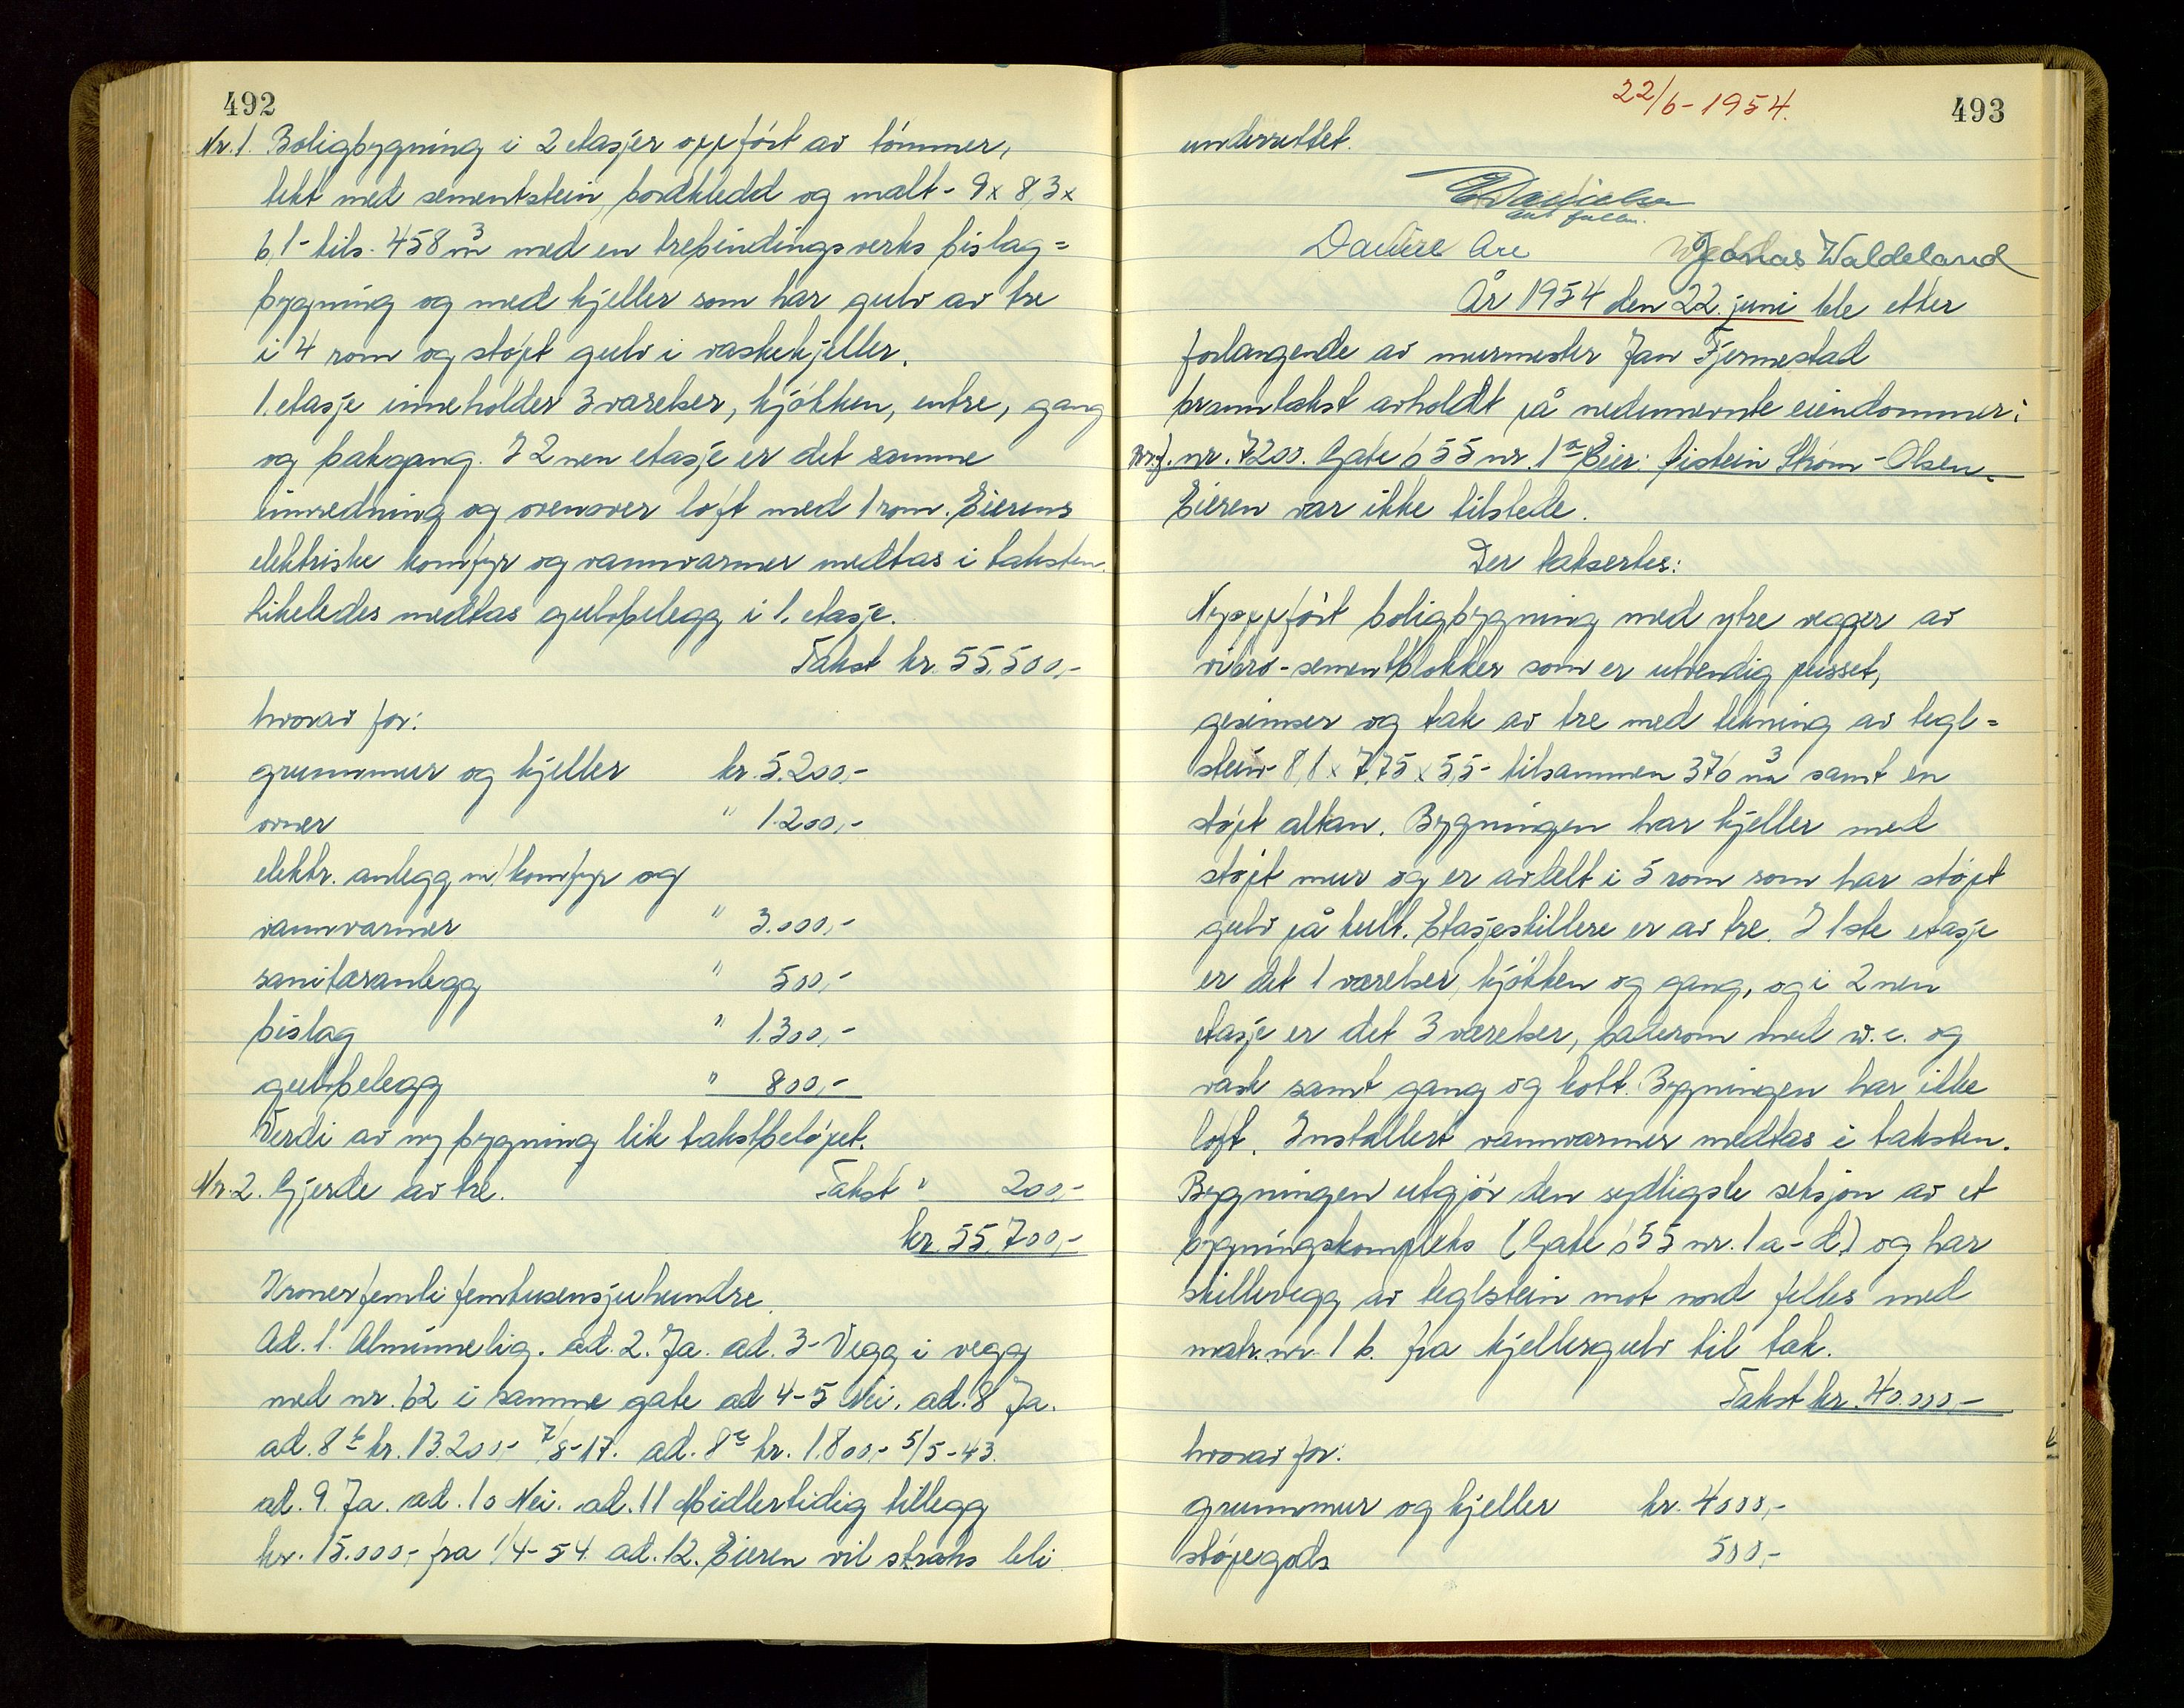 492
Nr. 1. Boligbygning i 2 etasjer oppført av tømmer,
tekt med sementstein, bordkledd og malt - 9 x 8,3 x
6,1 - tils. 458 m³ med en trebindingsverks bislag=
bygning og med kjeller som har gulv av tre
i 4 rom og støpt gulv i vaskekjeller.
1. etasje inneholder 3 værelser, kjøkken, entre, gang
og bakgang. I 2nen etasje er det samme
innredning og ovenover loft med 1 rom. Eierens
elektriske komfyr og vannvarmer medtas i taksten.
Likeledes medtas gulvbelegg i 1. etasje.
Takst kr. 55.500,-
hvorav for:
grunnmur og kjeller kr. 5.200,-
ovner " 1.200,-
elektr. anlegg m/komfyr og
vannvarmer " 3.000,-
sanitæranlegg " 500,-
bislag " 1.300,-
gulvbelegg " 800,-
Verdi av ny bygning lik takstbeløpet.
Nr. 2. Gjerde av tre. Takst " 200,-
kr. 55.700,-
Kroner femti femtusensjuhundre.
Ad. 1. Alminnelig. ad. 2. Ja. ad. 3 - Vegg i vegg
med nr. 62 i samme gate ad 4-5 Nei. ad. 8 Ja.
ad. 8 b kr. 13.200,- 7/8-17. ad. 8 c kr. 1.800,- 5/5-43.
ad. 9. Ja. ad. 10 Nei. ad. 11 Midlertidig tillegg
kr. 15.000,- fra 1/4-54. ad. 12. Eieren vil straks bli
22/6-1954.
493
underrettet.
Danielsen
Jonas Waldeland
År 1954 den 22. juni ble etter
forlangende av murmester Jan Fjermestad
branntakst avholdt på nedennevnte eiendommer:
nr. 7200. Gate ó 55 nr. 1 a Eier: Eistein Strøm-Olsen.
Eieren var ikke tilstede.
Der taksertes:
Nyoppført boligbygning med ytre vegger av
vibro-sementblokker som er utvendig pusset,
gesimser og tak av tre med tekning av tegl=
stein - 8,8 x 7,75 x 5,5 - tilsammen 376 m³ samt en
støpt altan. Bygningen har kjeller med
støpt mur og er avdelt i 5 rom som har støpt
gulv på kult. Etasjeskillere er av tre. I 1ste etasje
er det 1 værelser, kjøkken og gang, og i 2nen
etasje er det 3 værelser, baderom med w.c. og
vask samt gang og kott. Bygningen har ikke
loft. Installert vannvarmer medtas i taksten.
Bygningen utgjør den sydligste seksjon av et
bygningskompleks (Gate ó 55 nr. 1 a-d) og har
skillevegg av teglstein mot nord felles med
matr. nr. 1 b. fra kjellergulv til tak.
Takst kr. 40.000,-
hvorav for:
grunnmur og kjeller kr. 4000,-
støpegods 500,-